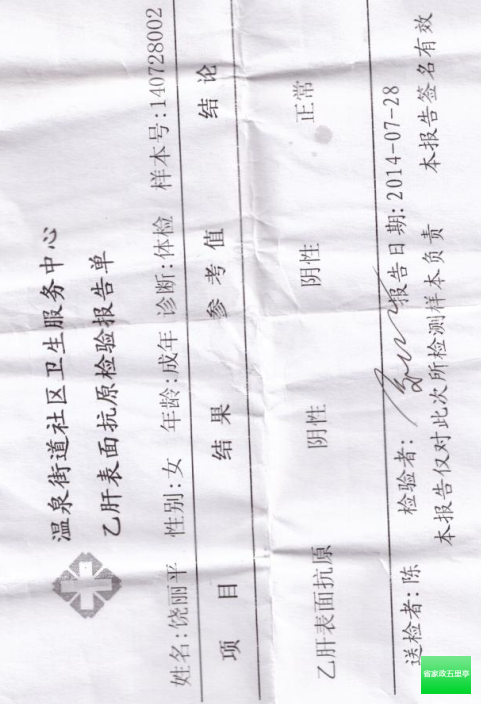 温泉街道社区卫生服务中心
乙肝表面抗原检验报告单
姓名:饶丽平 性别:女 年龄:成年 诊断:体检 样本号:140728002
项 目 结 果 参 考 值 结 论
乙肝表面抗原 阴性 阴性 正常
送检者:陈 检验者: 报告日期:2014-07-28
本报告仅对此次所检测样本负责 本报告签名有效
省家政五里亭